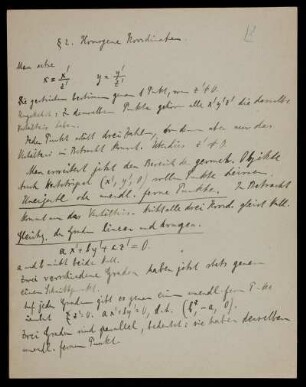 § 2. Homogene Koordinaten
Man setze
x = x'/z'   y = y'/z'
Die gestrichenen bestimmen genau 1 Punkt, wenn z' ≠ 0.
Umgekehrt: Zu demselben Punkte gehören alle x' y' z' die dasselbe
Verhältnis haben.
Jeden Punkt stellt drei Zahlen, bei denen aber nur das
Verhältnis in Betracht kommt. Überdies z' ≠ 0
Man erweitert jetzt den Bereich der geometr. Objekte
Auch Zahlentripel (x', y', 0) sollen Punkte heissen.
Uneigentl. oder unendl. ferne Punkte. In Betracht
kommt nur das Verhältnis. Nicht alle drei Koord. gleich Null.
Gleichg. der Geraden linear und homogen.
a x' + b y' + c z' = 0.
a und b nicht beide Null.
Zwei verschiedene Geraden haben jetzt stets genau
einen Schnittpunkt.
Auf jeder Geraden gibt es genau einen unendl. fern. Punkt
z' = 0. ax' + by' = 0, d.h. (b, -a, 0).
Zwei Geraden sind parallel, bedeutet: sie haben denselben
unendl. fernen Punkt.